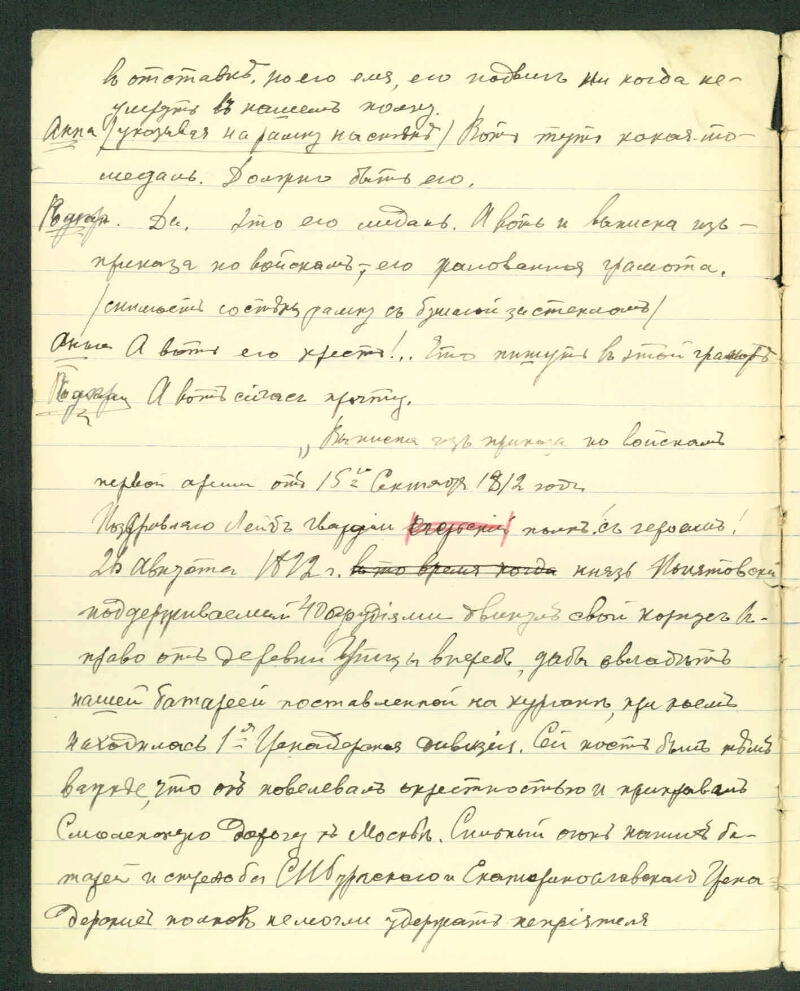 въ отставкѣ, но его имя, его подвигъ ни когда не-
умрутъ въ нашемъ полку.
Анна /указывая на рамку на стѣнѣ/ Вотъ тутъ какая-то
медаль. Должно быть его.
Да. Это его медаль. А вотъ и выписка изъ-
приказа по войскамъ, его жалованная грамота.
/снимаетъ со стѣны рамку съ бумагой за стекломъ/
Анна А вотъ его крестъ!.. Что пишутъ въ этой грамотѣ
А вотъ сичасъ прочту.
„Выписка изъ приказа по войскамъ
первой арміи отъ 15го Сентября 1812 года
Поздравляю Лейбъ гвардіи егерьскій полкъ съ героемъ!
26 Августа 1812 г. въ то время когда князь Понятовскій
поддерживаемый 40 орудіями двинулъ свой корпусъ в-
право отъ деревни Утицы впередъ, дабы овладѣть
нашей батареей поставленной на курганѣ, при коемъ
находилась 1я Гренадерская дивизія. Сей постъ былъ тѣмъ
важнѣе, что онъ повелевалъ окрестностью и прикрывалъ
Смоленскую дорогу къ Москвѣ. Сильный огонь нашихъ ба-
тарей и стрельба СПбургскаго и Екатеринославскаго Грена-
дерскихъ полковъ не могли удержать непріятеля